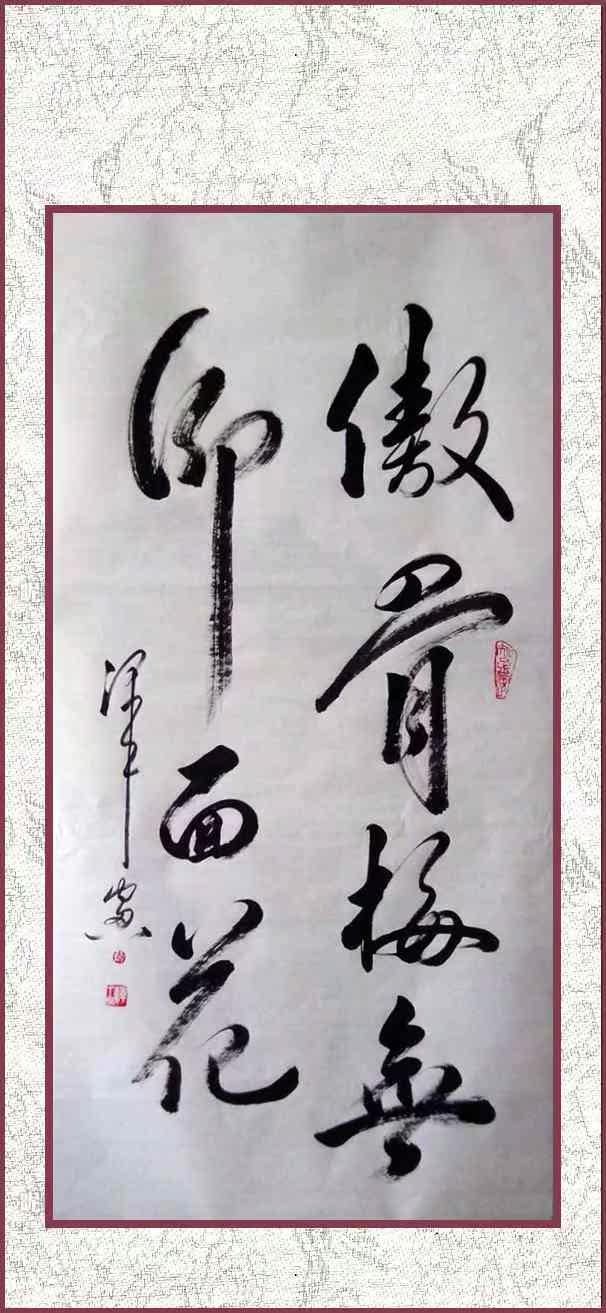 傲骨梅無
仰面花